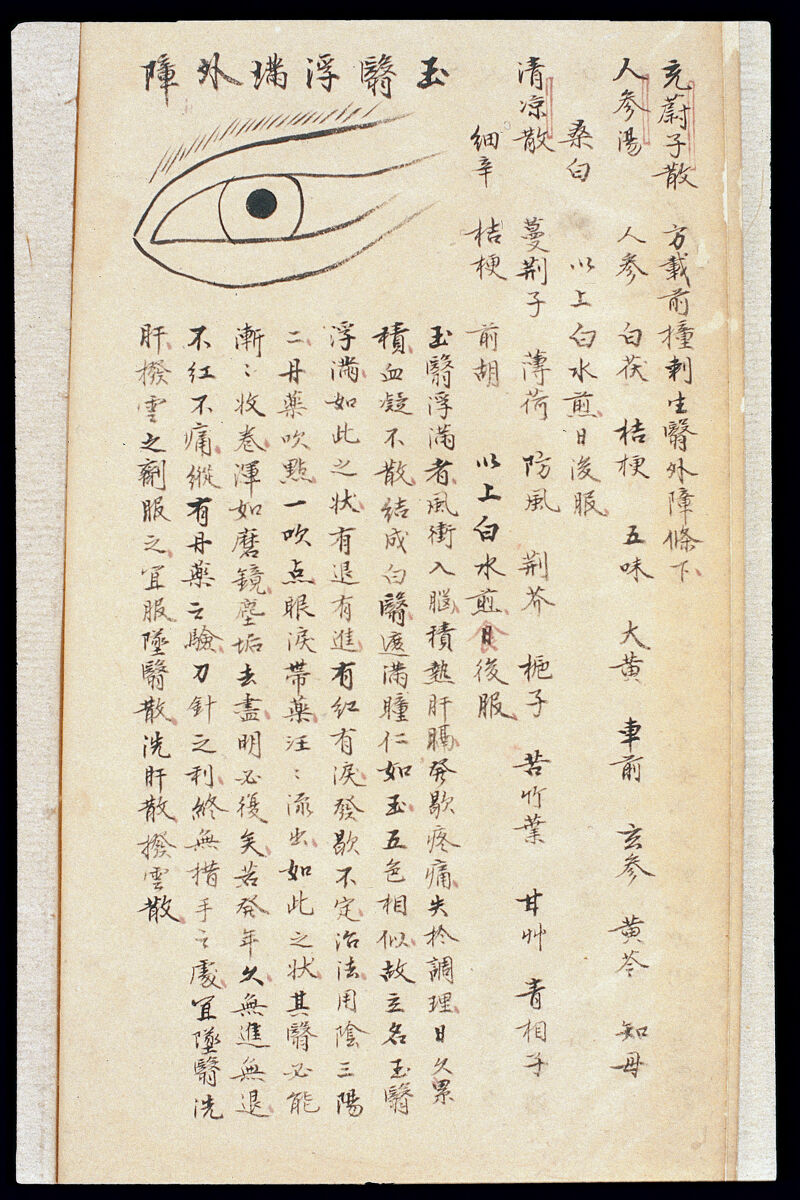 充蔚子散 方載前撞刺生翳外障條下
人參湯 人參 白茯 桔梗 五味 大黃 車前 玄參 黃芩 知母
桑白 以上白水煎日後服
清凉散 蔓荆子 薄荷 防風 荆芥 梔子 苦竹葉 甘艸 青相子
細辛 桔梗 前胡 以上白水煎食後服
玉翳浮瑞外障
玉翳浮滿者風衝入腦積熱肝膈發歇疼痛失於調理日久累
積血凝不散結成白翳遮滿瞳仁如玉五色相似故立名玉翳
浮滿如此之狀有退有進有紅有淚發歇不定治法用陰三陽
二丹藥吹點一吹点眼淚帶藥汪〻流出如此之狀其翳必能
漸〻收卷渾如磨鏡塵垢去盡明必復矣若發年久無進無退
不紅不痛縱有丹藥之驗刀針之利終無措手之處宜墜翳洗
肝撥雲之劑服之宜服墜翳散洗肝散撥雲散